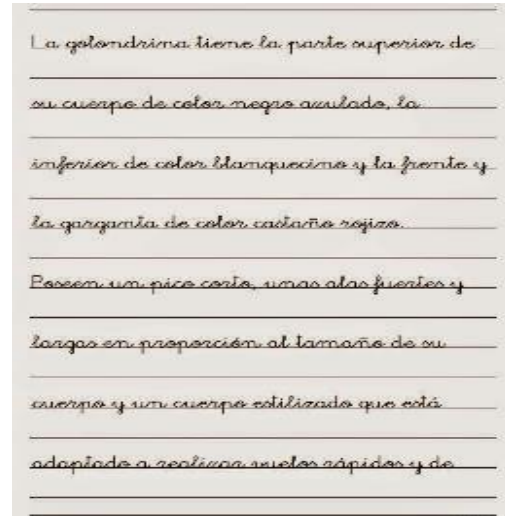 La golondrina tiene la parte superior de
su cuerpo de color negro azulado, la
inferior de color blanquecino y la frente y
la garganta de color castaño rojizo.
Poseen un pico corto, unas alas fuertes y
largas en proporción al tamaño de su
cuerpo y un cuerpo estilizado que está
adaptado a realizar vuelos rápidos y de